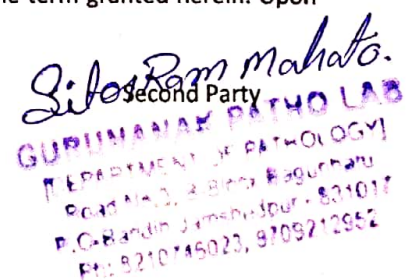 e term granted herein. Upon
SitaRam Mahato.
Second Party
GURUNANAK PATHO LAB
[DEPARTMENT OF PATHOLOGY]
Road No.3,
P.O- Jamshedpur - 831017
Ph: 8210745023, 9709212952